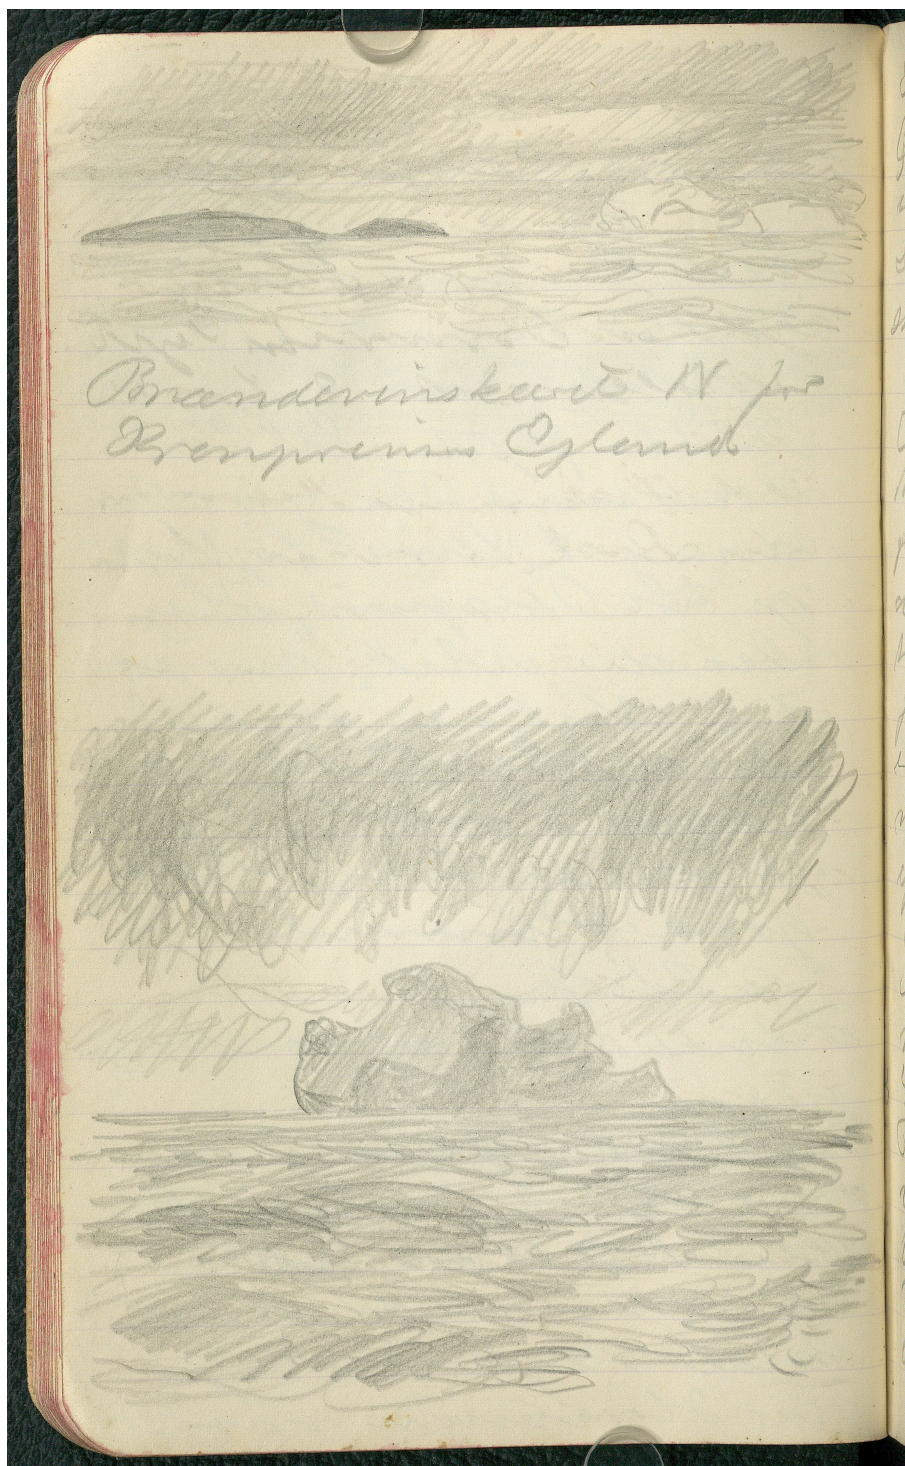 Brændevinskæret N for
Kronprinsens Ejland